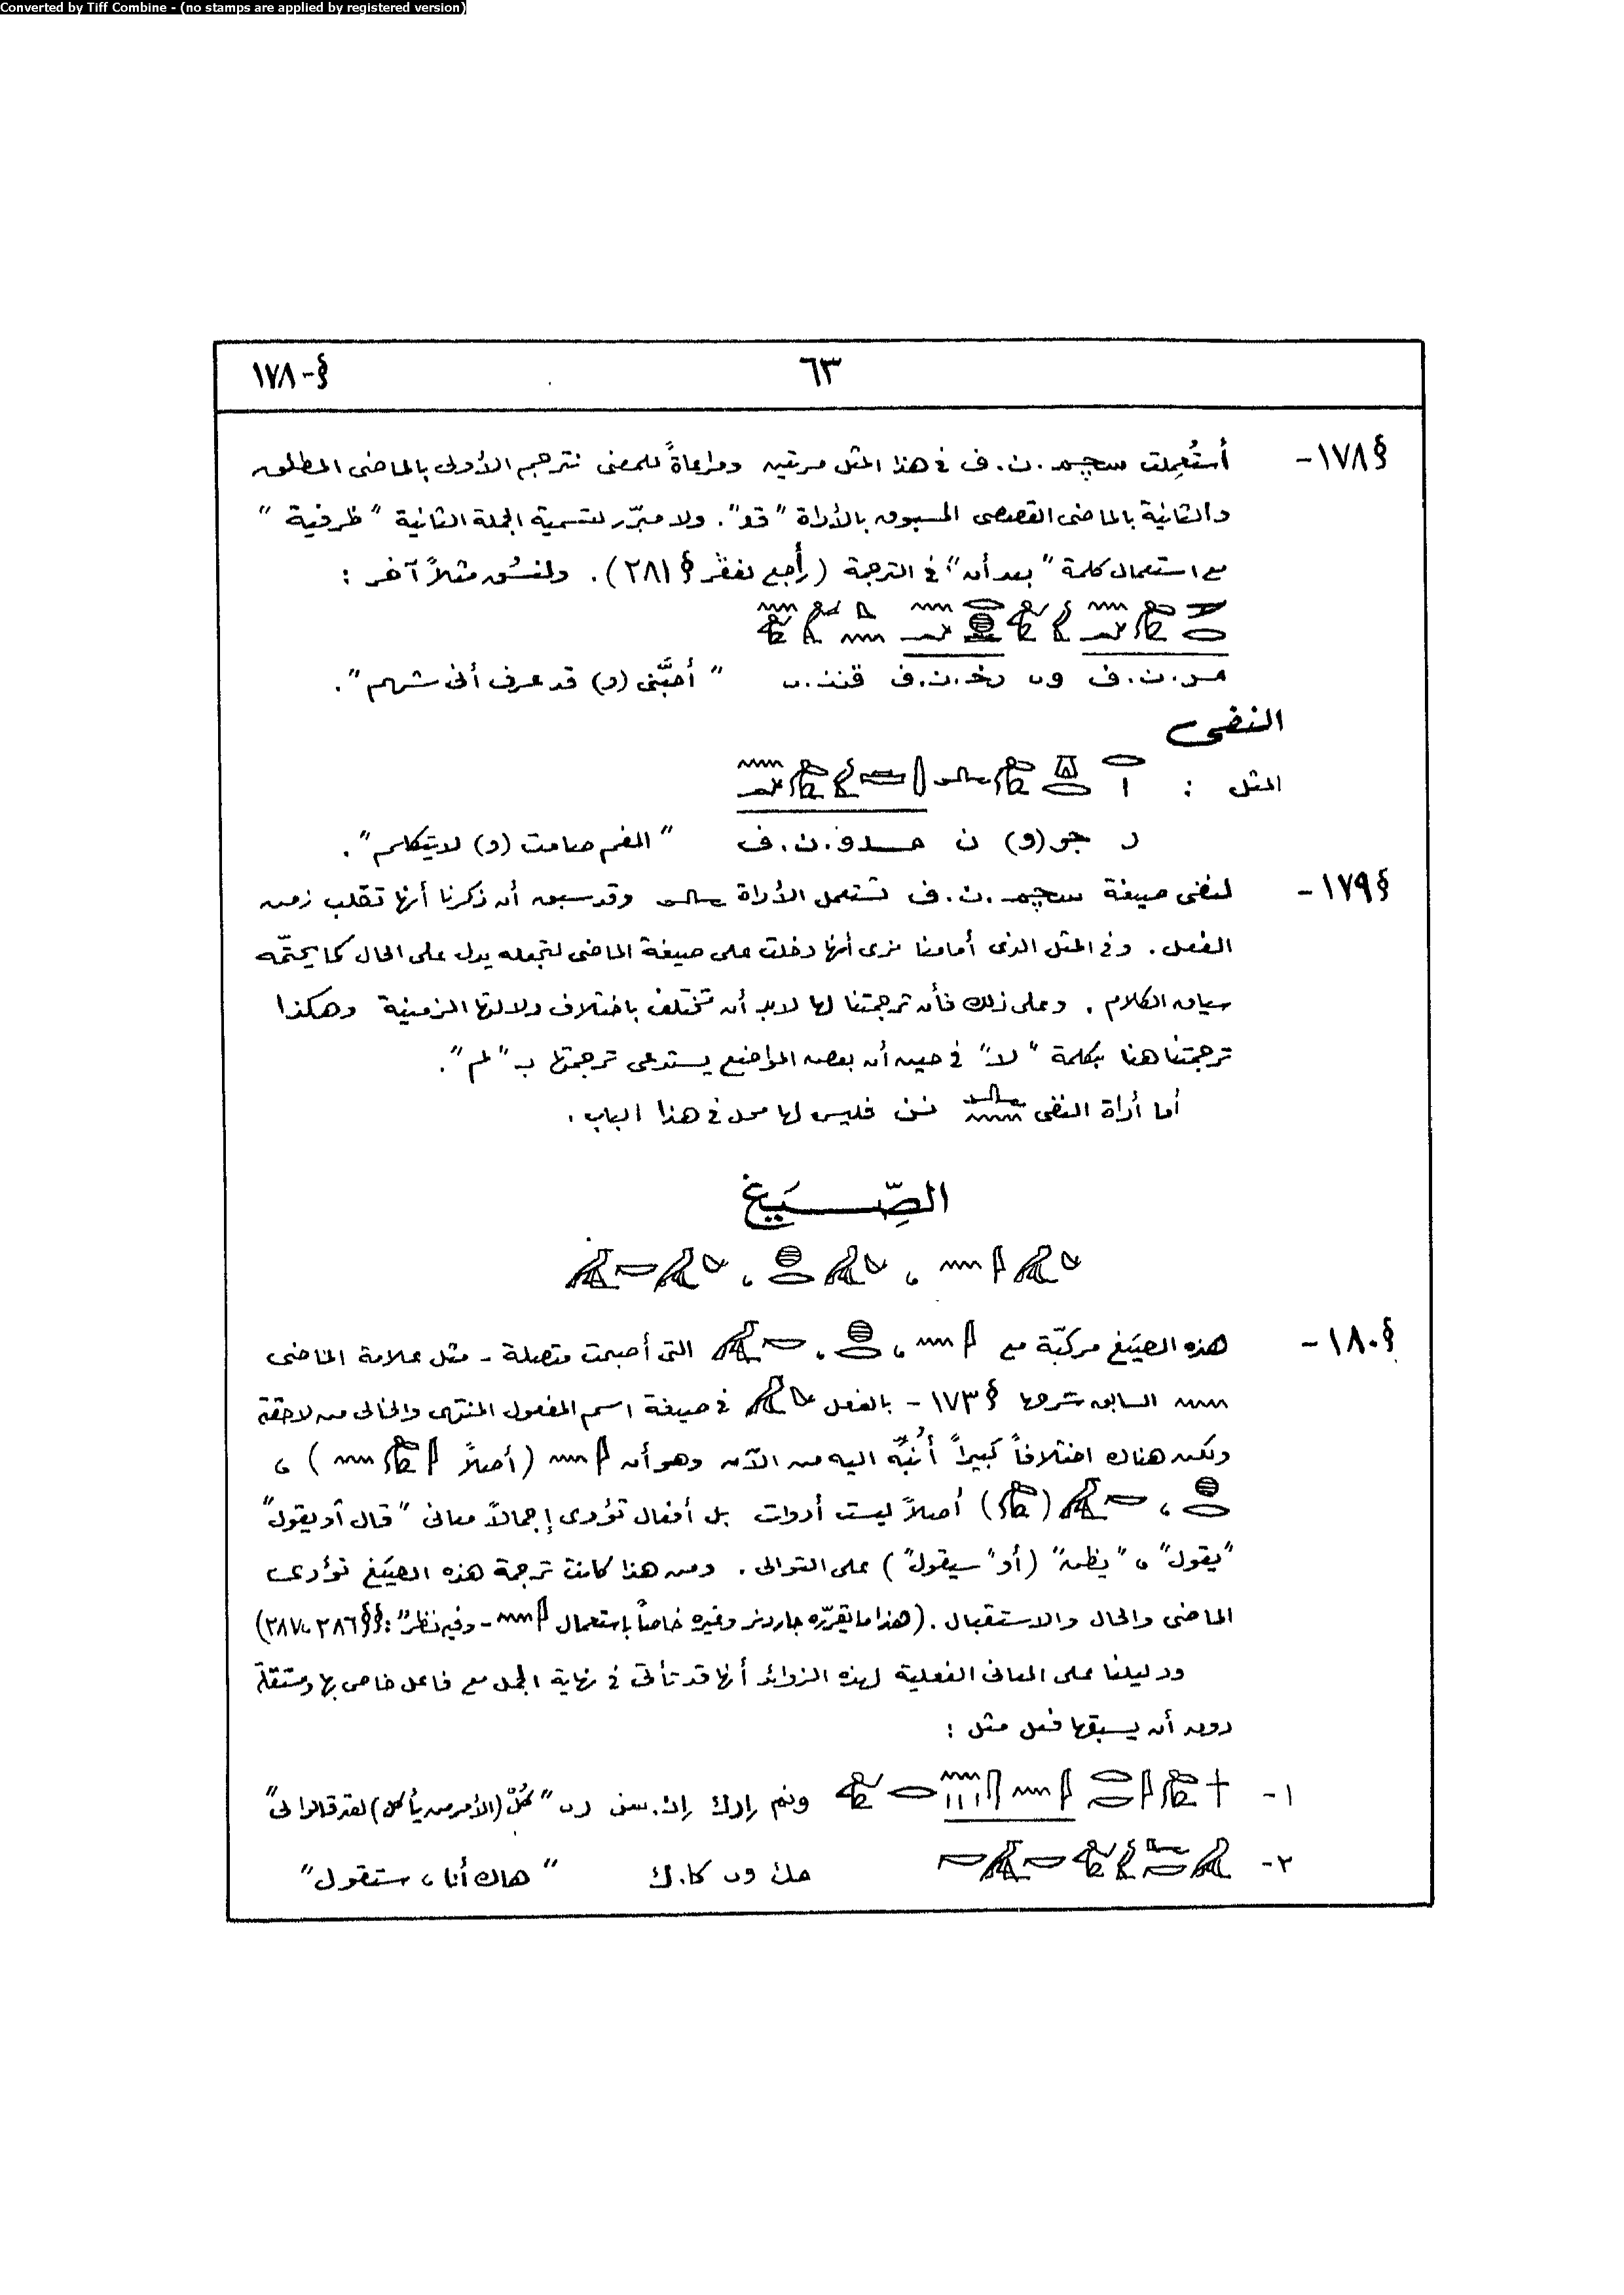 Converted by Tiff Combine - (no stamps are applied by registered version)
٦٣
§-١٧٨
§١٧٨- أستُعمِلت سچم.ن.ف فى هذا المثل مرتين ومراعاةً للمعنى نترجم الأولى بالماضى المطلق
والثانية بالماضى القصصى المسبوق بالأداة "قد". ولا مبرّر لتسمية الجملة الثانية "ظرفية"
مع استعمال كلمة "بعد أن" فى الترجمة (راجع §٢٨١). ولنسُق مثلاً آخر :
"أحبَّنى (و) قد عرف أنى شهم".
النفى
المثل :
ر جر(و) ن مدو.ن.ف "الفم صامت (و) لا يتكلم".
§١٧٩- لنفى صيغة سچم.ن.ف تستعمل الأداة وقد سبق أن ذكرنا أنها تقلب زمن
الفعل. وفى المثل الذى أمامنا نرى أنها دخلت على صيغة الماضى لتجعله يدل على الحال كما يحتّمه
سياق الكلام. وعلى ذلك فأن ترجمتنا لها لابد أن تختلف باختلاف دلالتها الزمنية وهكذا
ترجمتنا هنا بكلمة "لا" فى حين أن بعض المواضع يستدعى ترجمتها بـ "لم".
أما أداة النفى نن فليس لها محل فى هذا الباب.
الصِّيَغ
§١٨٠- هذه الصيَغ مركبّة مع التى أصبحت متصلة - مثل علامة الماضى
السابق شرحها §١٧٣ - بالفعل فى صيغة اسم المفعول المنتهى والخالى من لاحقة
ولكن هناك اختلافاً كبيراً أُنبِّه اليه من الآن وهو أن (أصلاً ) ،
، ( ) أصلاً ليست أدوات بل أفعال تؤدى إجمالاً معانى "قال أو يقول"
"يقول" ، "يظن" (أو "سيقول") على التوالى. ومن هذا كانت ترجمة هذه الصيَغ تؤدى
الماضى والحال والاستقبال. (هذا ما يقرّره جاردنر وغيره خاصاً بإستعمال - وفيه نظر : §§٢٨٦،٢٨٧)
ودليلنا على المعانى الفعلية لهذه الزوائد أنها قد تأتى فى نهاية الجمل مع فاعل خاص بها ومستقلة
دون أن يسبقها فعل مثل :
١- "كُلْ (الأمر من يأكل) لقد قالوا لى"
٢- "هاك أنا ، ستقول"